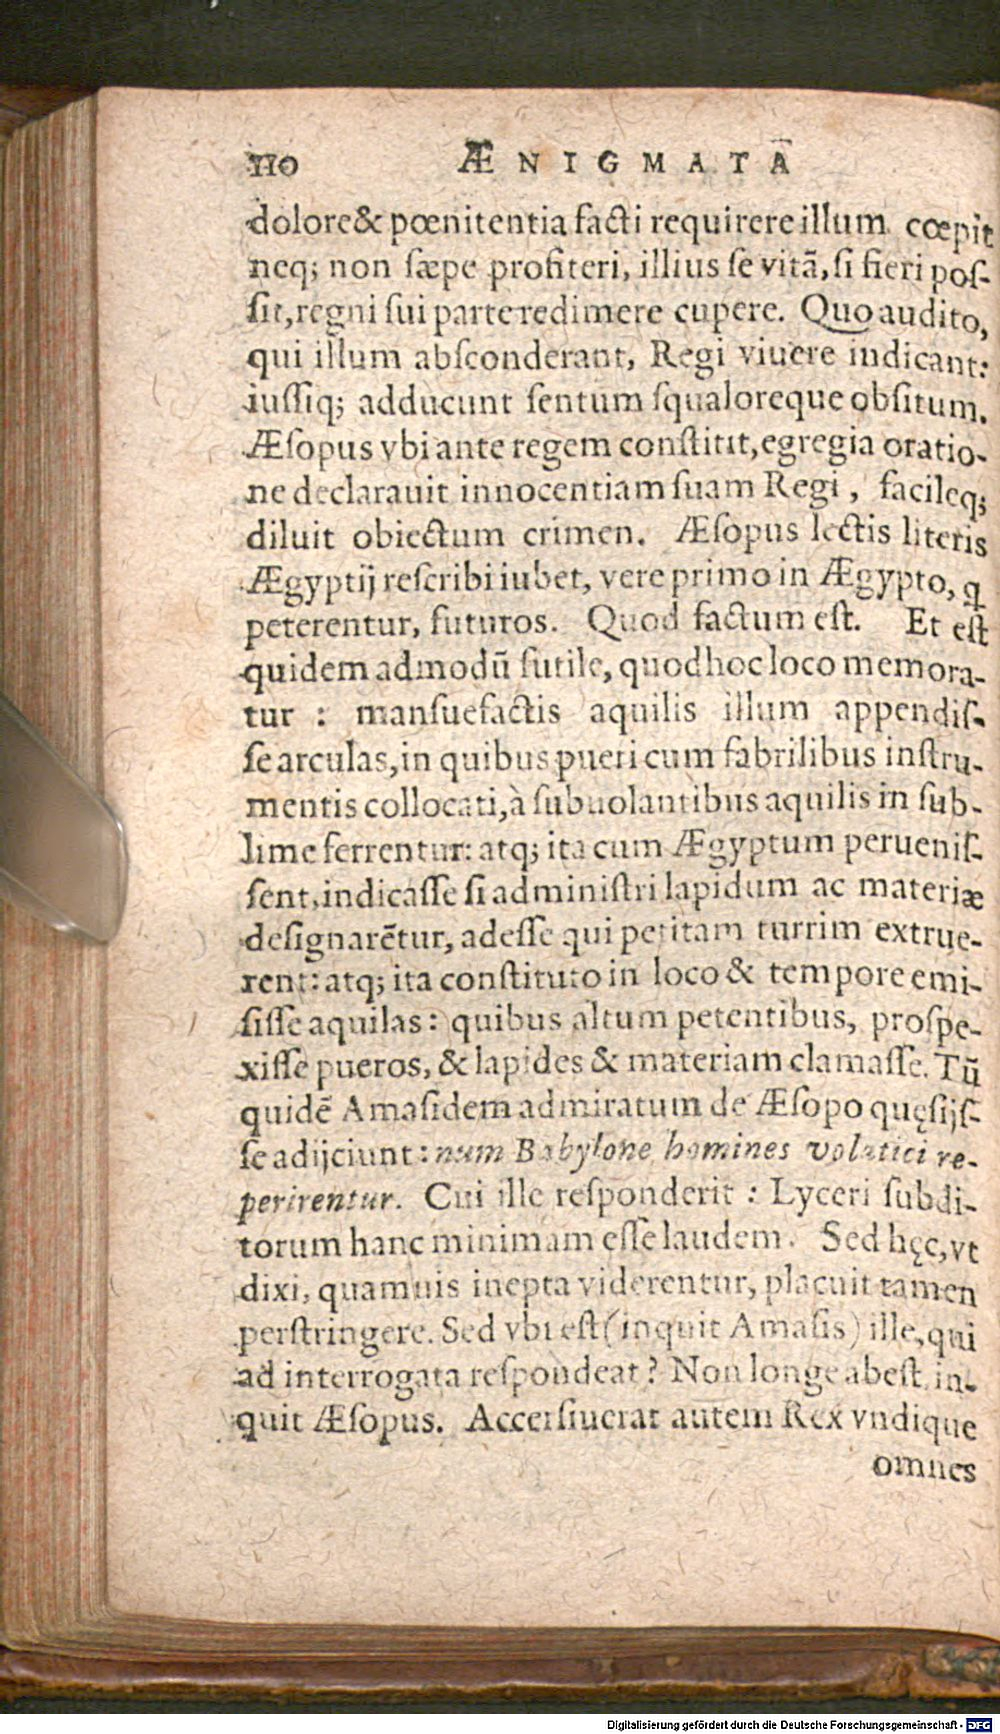 110 ÆNIGMATA
dolore & pœnitentia facti requirere illum cœpit
neq; non sæpe profiteri, illius se vitã, si fieri pos-
sit, regni sui parte redimere cupere. Quo audito,
qui illum absconderant, Regi viuere indicant:
iussiq; adducunt sentum squaloreque obsitum.
Æsopus vbi ante regem constitit, egregia oratio-
ne declarauit innocentiam suam Regi, facileq;
diluit obiectum crimen. Æsopus lectis literis
Ægyptij rescribi iubet, vere primo in Ægypto, ꝗ
peterentur, futuros. Quod factum est. Et est
quidem admodũ futile, quod hoc loco memora-
tur : mansuefactis aquilis illum appendis-
se arculas, in quibus pueri cum fabrilibus instru-
mentis collocati, à subuolantibus aquilis in sub-
lime ferrentur: atq; ita cum Ægyptum peruenis-
sent, indicasse si administri lapidum ac materiæ
designarẽtur, adesse qui petitam turrim extrue-
rent: atq; ita constituto in loco & tempore emi-
sisse aquilas: quibus altum petentibus, prospe-
xisse pueros, & lapides & materiam clamasse. Tũ
quidẽ Amasidem admiratum de Æsopo quęsijs-
se adijciunt: num Babylone homines volatici re-
perirentur. Cui ille responderit : Lyceri subdi-
torum hanc minimam esse laudem. Sed hęc, vt
dixi, quamuis inepta viderentur, placuit tamen
perstringere. Sed vbi est (inquit Amasis) ille, qui
ad interrogata respondeat? Non longe abest, in-
quit Æsopus. Accersiuerat autem Rex vndique
omnes
Digitalisierung gefördert durch die Deutsche Forschungsgemeinschaft - DFG